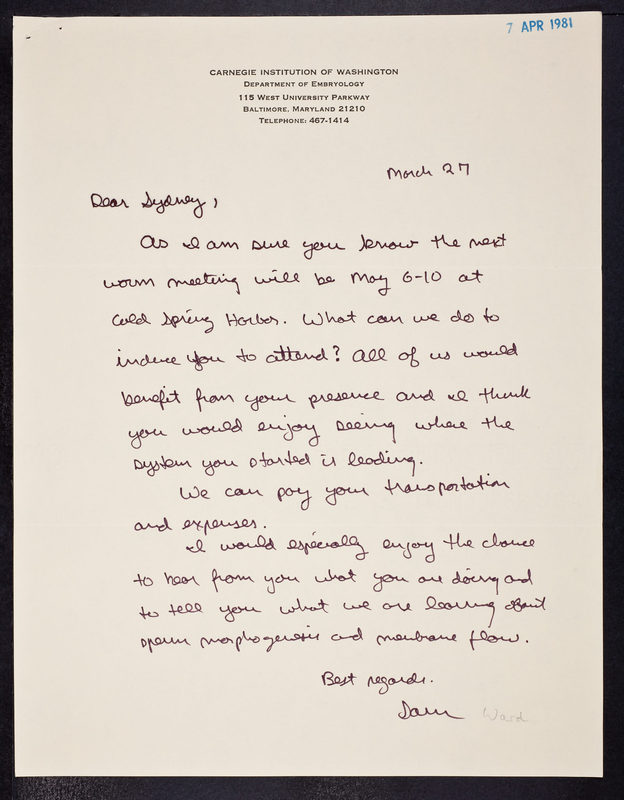 7 APR 1981
CARNEGIE INSTITUTION OF WASHINGTON
DEPARTMENT OF EMBRYOLOGY
115 WEST UNIVERSITY PARKWAY
BALTIMORE, MARYLAND 21210
TELEPHONE: 467-1414
March 27
Dear Sydney,
As I am sure you know the next
worm meeting will be May 6-10 at
Cold Spring Harbor. What can we do to
induce you to attend? All of us would
benefit from your presence and I think
you would enjoy seeing where the
system you started is leading.
We can pay your transportation
and expenses.
I would especially enjoy the chance
to hear from you what you are doing and
to tell you what we are learning about
sperm morphogenesis and membrane flow.
Best regards.
Sam Ward